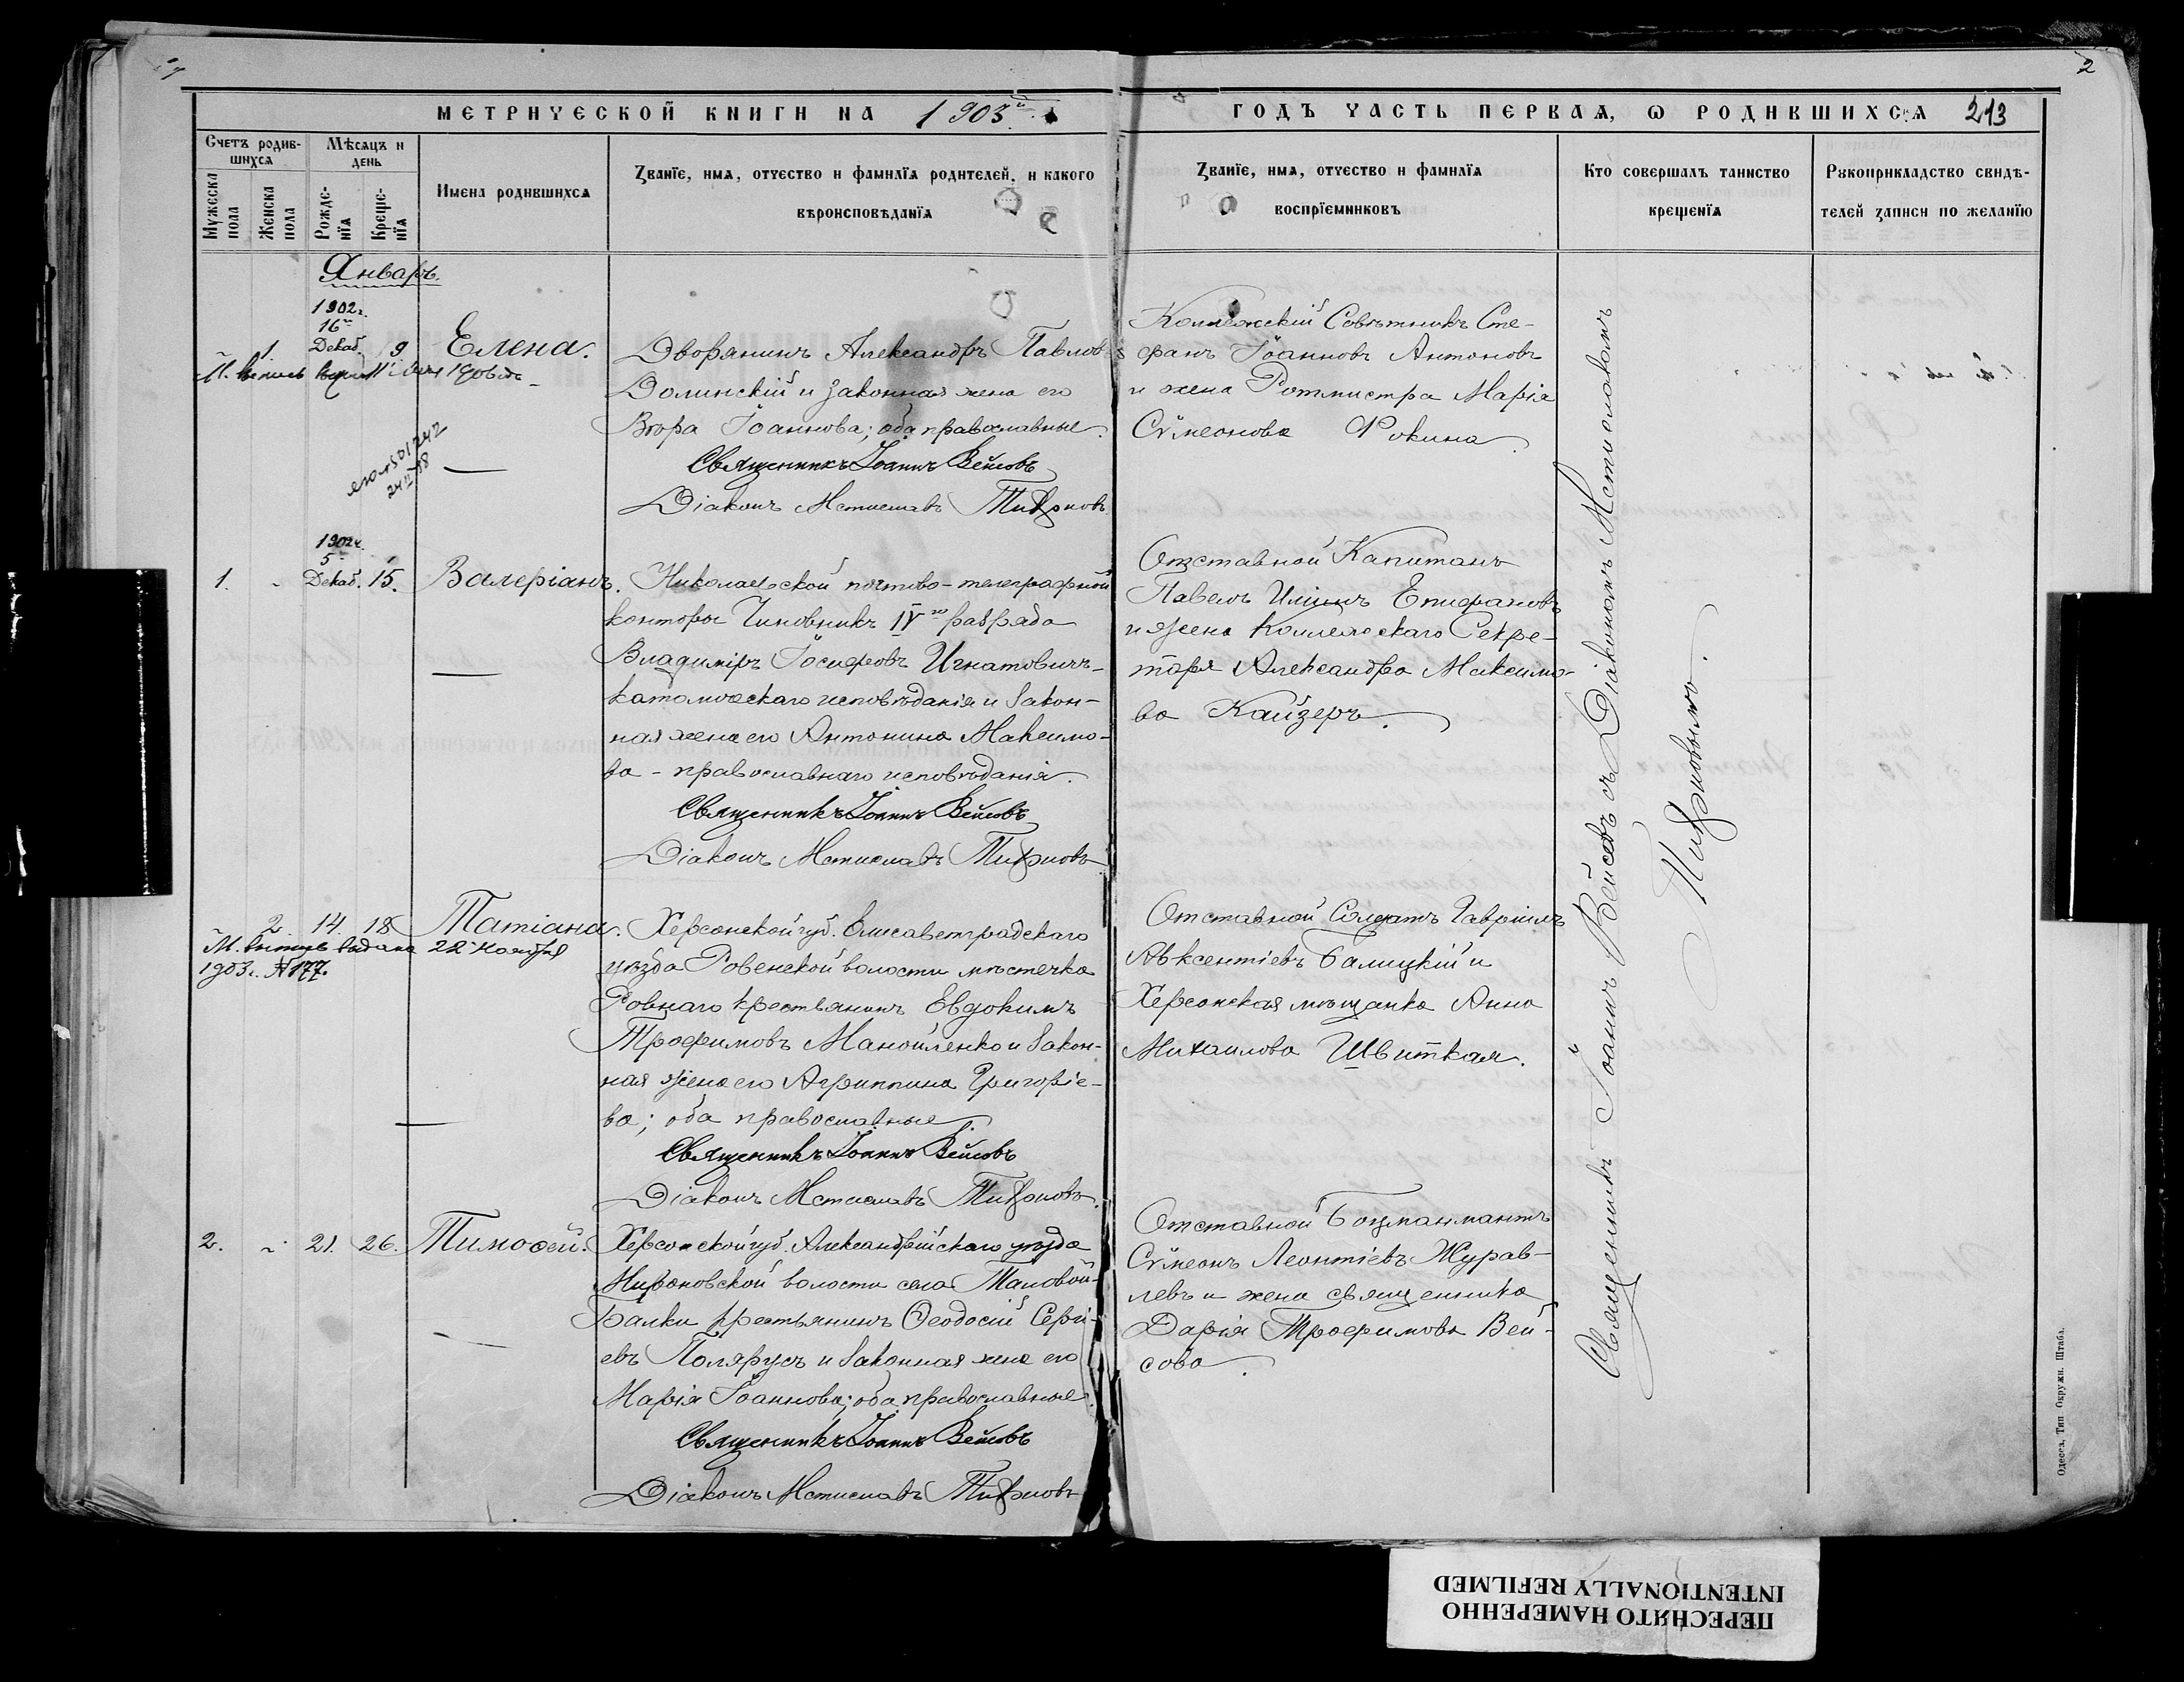 2
МЕТРИЧЕСКОЙ КНИГИ НА 1903й
ГОДЪ ЧАСТЬ ПЕРВАЯ, Ѡ РОДИВШИХСЯ 213
Счетъ родившихся
Мужеска пола
Женска пола
Мѣсяцъ и день
Рожденїя
Крещенїя
Имена родившихся
Званїе, имя, отчество и фамилїя родителей, и какого
вѣроисповѣданїя
Званїе, имя, отчество и фамилїя
воспрїемниковъ
Кто совершалъ таинство
крещенїя
Рукоприкладство свидѣ-
телей записи по желанїю
Январь.
1902г.
16го
1 Декаб. 9 Елена.
Дворянинъ Александръ Павловъ
Долинскій и законная жена его
Вѣра Іоаннова; оба православные.
Священникъ Іоаннъ Вейсовъ
Діаконъ Мстиславъ Тифоновъ
Коллежскій Совѣтникъ Сте-
фанъ Іоанновъ Антоновъ
и жена Ротмистра Марія
Сѵмеонова Фокина.
1902г.
5го
1. Декаб. 15. Валеріанъ.
Николаевской почтово-телеграфной
конторы Чиновникъ IVго разряда
Владиміръ Іосифовъ Игнатовичъ-
католическаго исповѣданія и закон-
ная жена его Антонина Максимо-
ва - православнаго исповѣданія.
Священникъ Іоаннъ Вейсовъ
Діаконъ Мстиславъ Тифоновъ
Отставной Капитанъ
Павелъ Ильинъ Епифановъ
и жена Коллежскаго Секре-
таря Александра Максимо-
ва Кайзеръ.
2. 14. 18. Татіана.
М. выпись выдана 22 Ноября
1903г. №177.
Херсонской губ. Елисаветградскаго
уѣзда Ровенской волости мѣстечка
Ровнаго крестьянинъ Евдокимъ
Трофимовъ Манойленко и закон-
ная жена его Агриппина Григоріе-
ва; оба православные.
Священникъ Іоаннъ Вейсовъ
Діаконъ Мстиславъ Тифоновъ.
Отставной Солдатъ Гавріилъ
Авксентіевъ Балицкій и
Херсонская мѣщанка Анна
Михаилова Швиткая.
2. 21. 26. Тимоѳей.
Херсонской губ. Александрійскаго уѣзда
волости села Таловой-
Балки крестьянинъ Ѳеодосій Сергі-
евъ Полярусъ и законная жена его
Марія Іоаннова; оба православные.
Священникъ Іоаннъ Вейсовъ
Діаконъ Мстиславъ Тифоновъ
Отставной Боцманматъ
Сѵмеонъ Леонтіевъ Журав-
левъ и жена священника
Дарія Трофимова Вей-
сова.
Священникъ Іоаннъ Вейсовъ съ Діакономъ Мстиславомъ
Тифоновымъ.
Одесса, Тип Окружн. Штаба.
ПЕРЕСНЯТО НАМЕРЕННО
INTENTIONALLY REFILMED